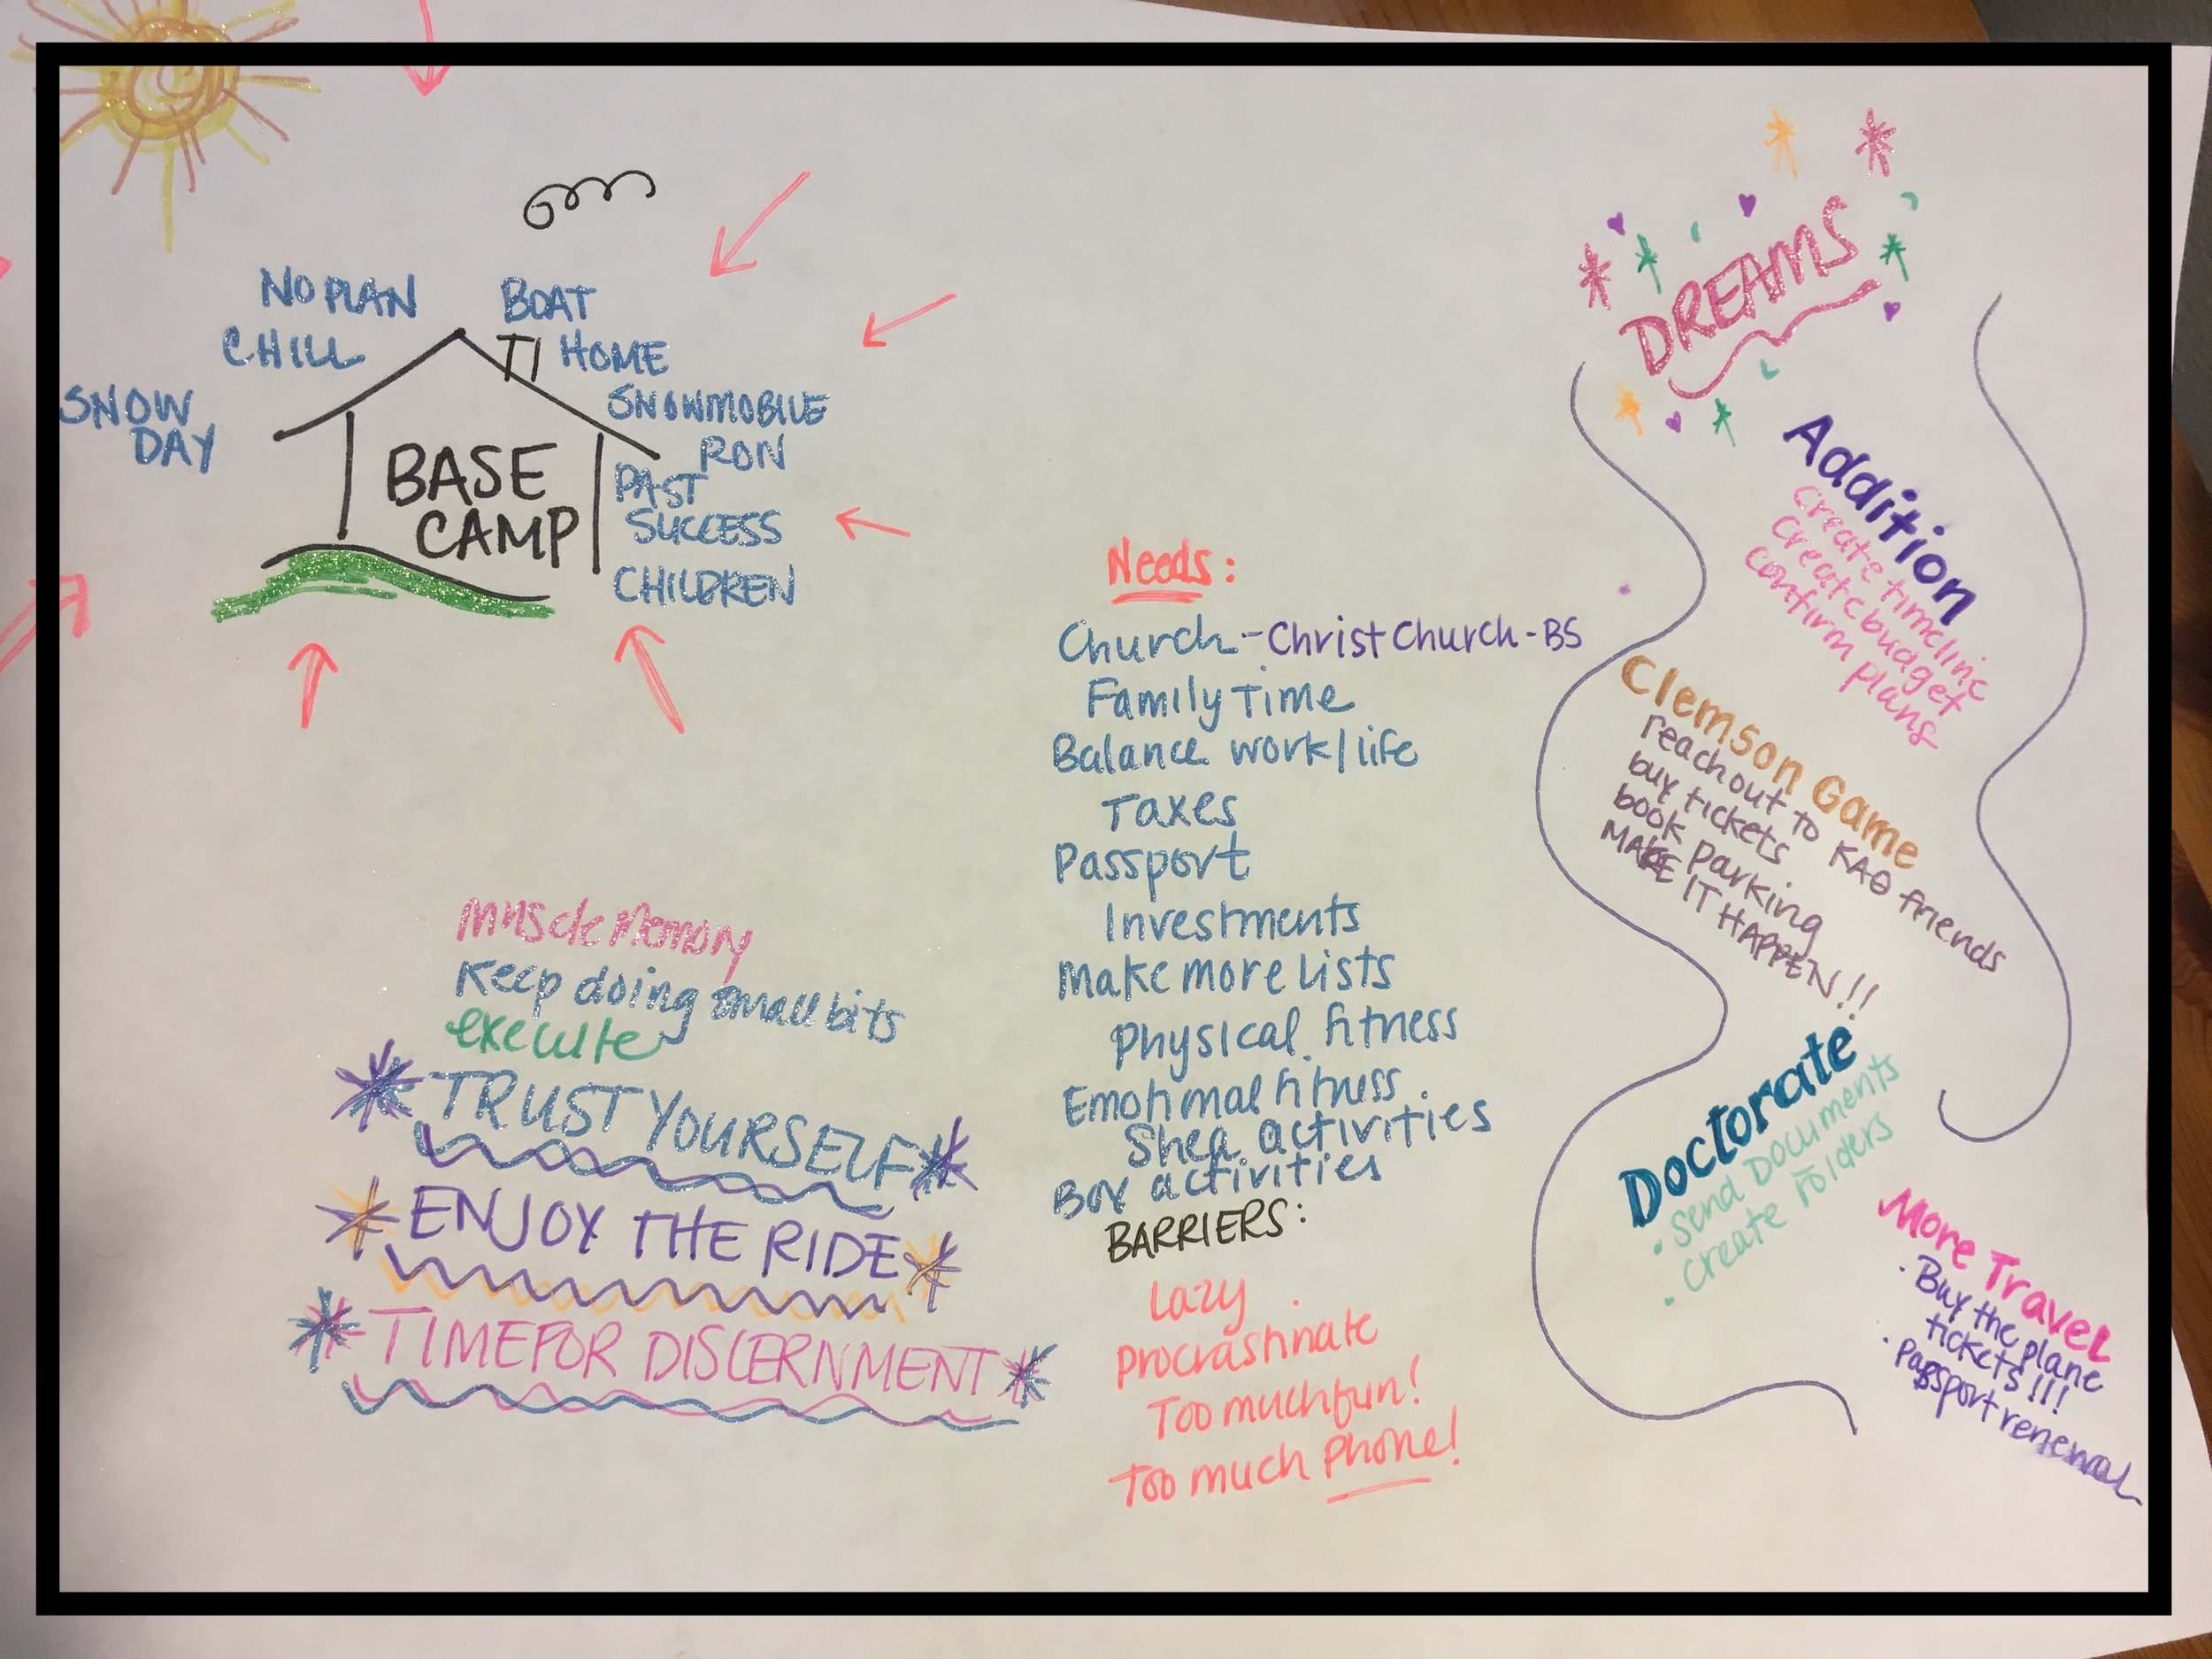 NO PLAN
CHILL
SNOW
DAY
BOAT
HOME
SNOWMOBILE
RON
PAST
SUCCESS
CHILDREN
BASE
CAMP
Muscle Memory
Keep doing small bits
execute
TRUST YOURSELF
ENJOY THE RIDE
TIME FOR DISCERNMENT
Needs:
Church - Christ Church - BS
Family Time
Balance work/life
Taxes
Passport
Investments
Make more lists
Physical fitness
Emotional fitness
Shea activities
Box activities
BARRIERS:
Lazy
procrastinate
Too much fun!
Too much phone!
DREAMS
Addition
create timeline
Create budget
Confirm plans
Clemson Game
reach out to KAΘ friends
buy tickets
book parking
MAKE IT HAPPEN!!
Doctorate
• Send Documents
• Create Folders
More Travel
• Buy the plane
tickets!!!
• Passport renewal